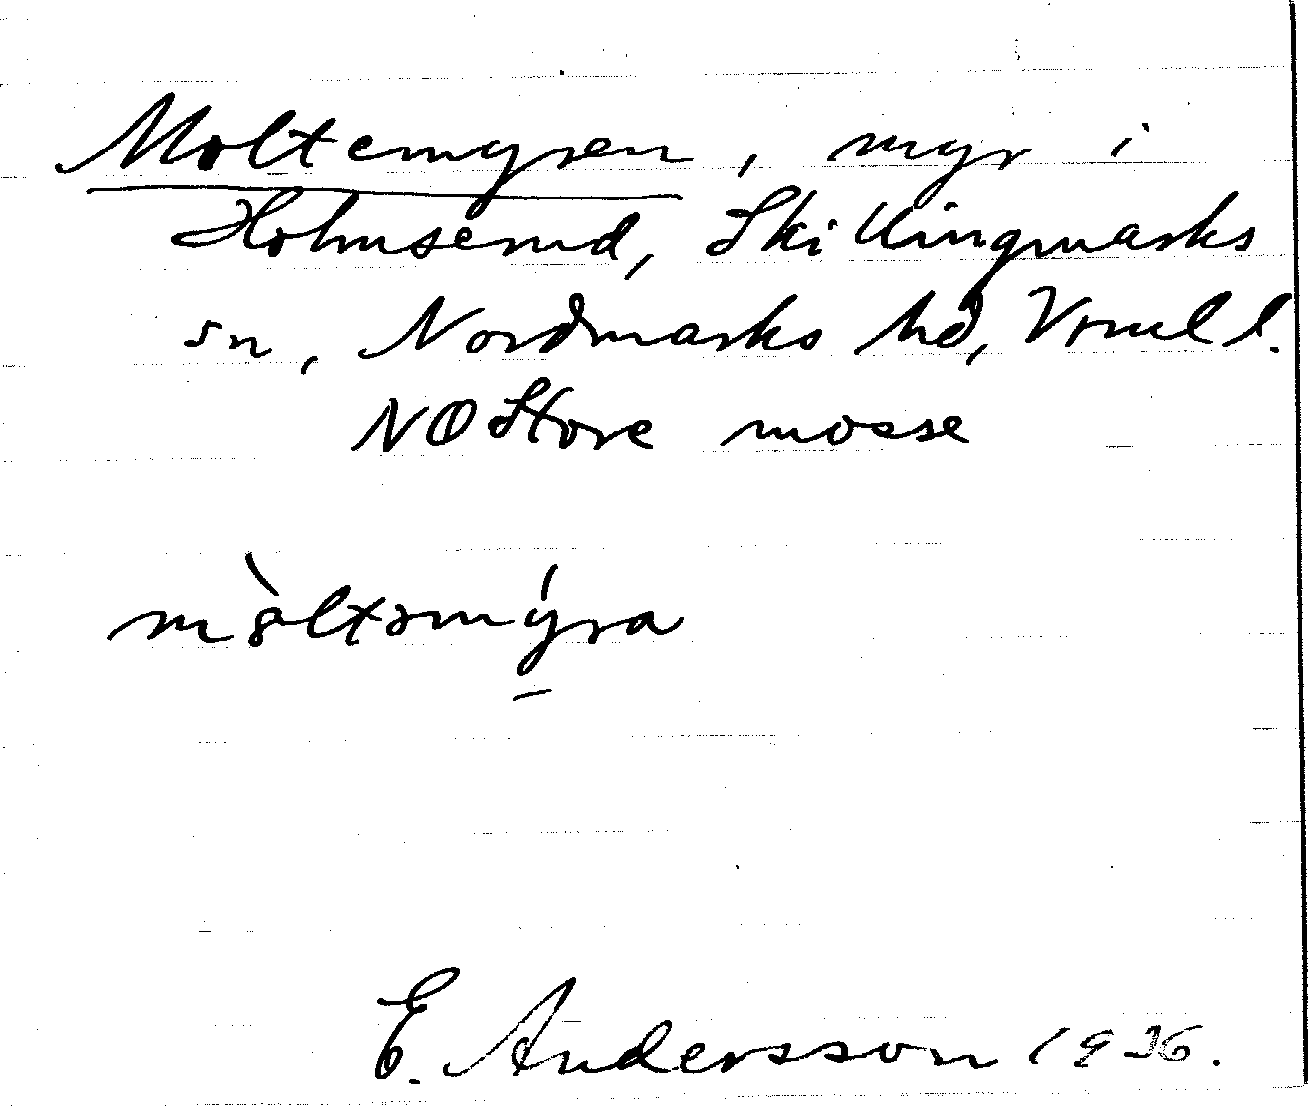 Moltemyren, myr i
Holmserud, Skillingmarks
sn, Nordmarks hd, Vrml l.
NO Store mosse
mòltamýra
E. Andersson 1936.